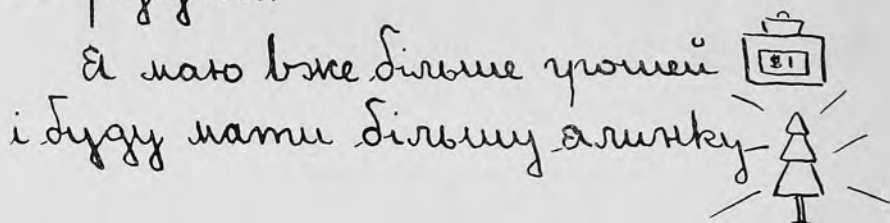 Я маю вже більше грошей $1
і буду мати більшу ялинку